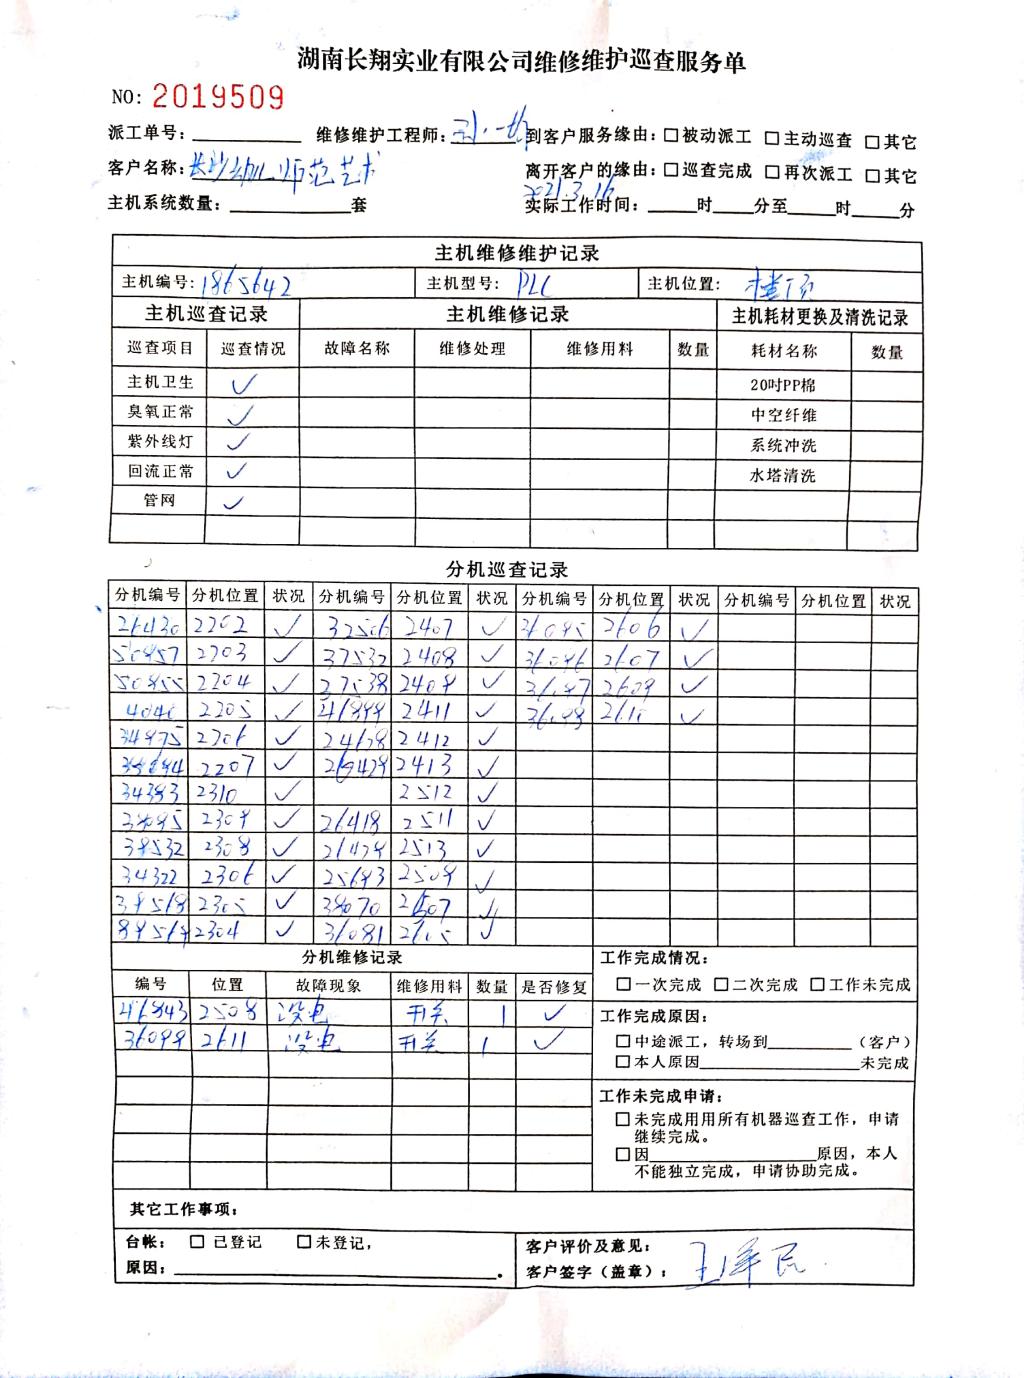 湖南长翔实业有限公司维修维护巡查服务单
NO: 2019509
派工单号: 维修维护工程师: 到客户服务缘由: □被动派工 □主动巡查 □其它
客户名称: 长沙幼儿师范艺术 离开客户的缘由: □巡查完成 □再次派工 □其它
2021.3.16
主机系统数量: 套 实际工作时间: 时 分至 时 分
主机维修维护记录
主机编号: 1865642 主机型号: PLC 主机位置: 楼顶
主机巡查记录 主机维修记录 主机耗材更换及清洗记录
巡查项目 巡查情况 故障名称 维修处理 维修用料 数量 耗材名称 数量
主机卫生 ✓ 20吋PP棉
臭氧正常 ✓ 中空纤维
紫外线灯 ✓ 系统冲洗
回流正常 ✓ 水塔清洗
管网 ✓
分机巡查记录
分机编号 分机位置 状况 分机编号 分机位置 状况 分机编号 分机位置 状况 分机编号 分机位置 状况
26430 2202 ✓ 32506 2407 ✓ 2606 ✓
2203 ✓ 37532 2408 ✓ 2607 ✓
2204 ✓ 37538 2409 ✓ 2609 ✓
2205 ✓ 2411 ✓ 2610 ✓
34975 2206 ✓ 24628 2412 ✓
2207 ✓ 26429 2413 ✓
34383 2310 ✓ 2512 ✓
2309 ✓ 26418 2511 ✓
38532 2308 ✓ 2513 ✓
34322 2306 ✓ 25693 2509 ✓
2305 ✓ 38070 2507 ✓
2304 ✓ 31081 2605 ✓
分机维修记录 工作完成情况:
编号 位置 故障现象 维修用料 数量 是否修复 □一次完成 □二次完成 □工作未完成
46843 2508 没电 开关 1 ✓ 工作完成原因:
36099 2611 没电 开关 1 ✓ □中途派工，转场到 （客户）
□本人原因 未完成
工作未完成申请:
□未完成用用所有机器巡查工作，申请
继续完成。
□因 原因，本人
不能独立完成，申请协助完成。
其它工作事项:
台帐: □ 已登记 □未登记， 客户评价及意见:
原因: 。 客户签字（盖章）: